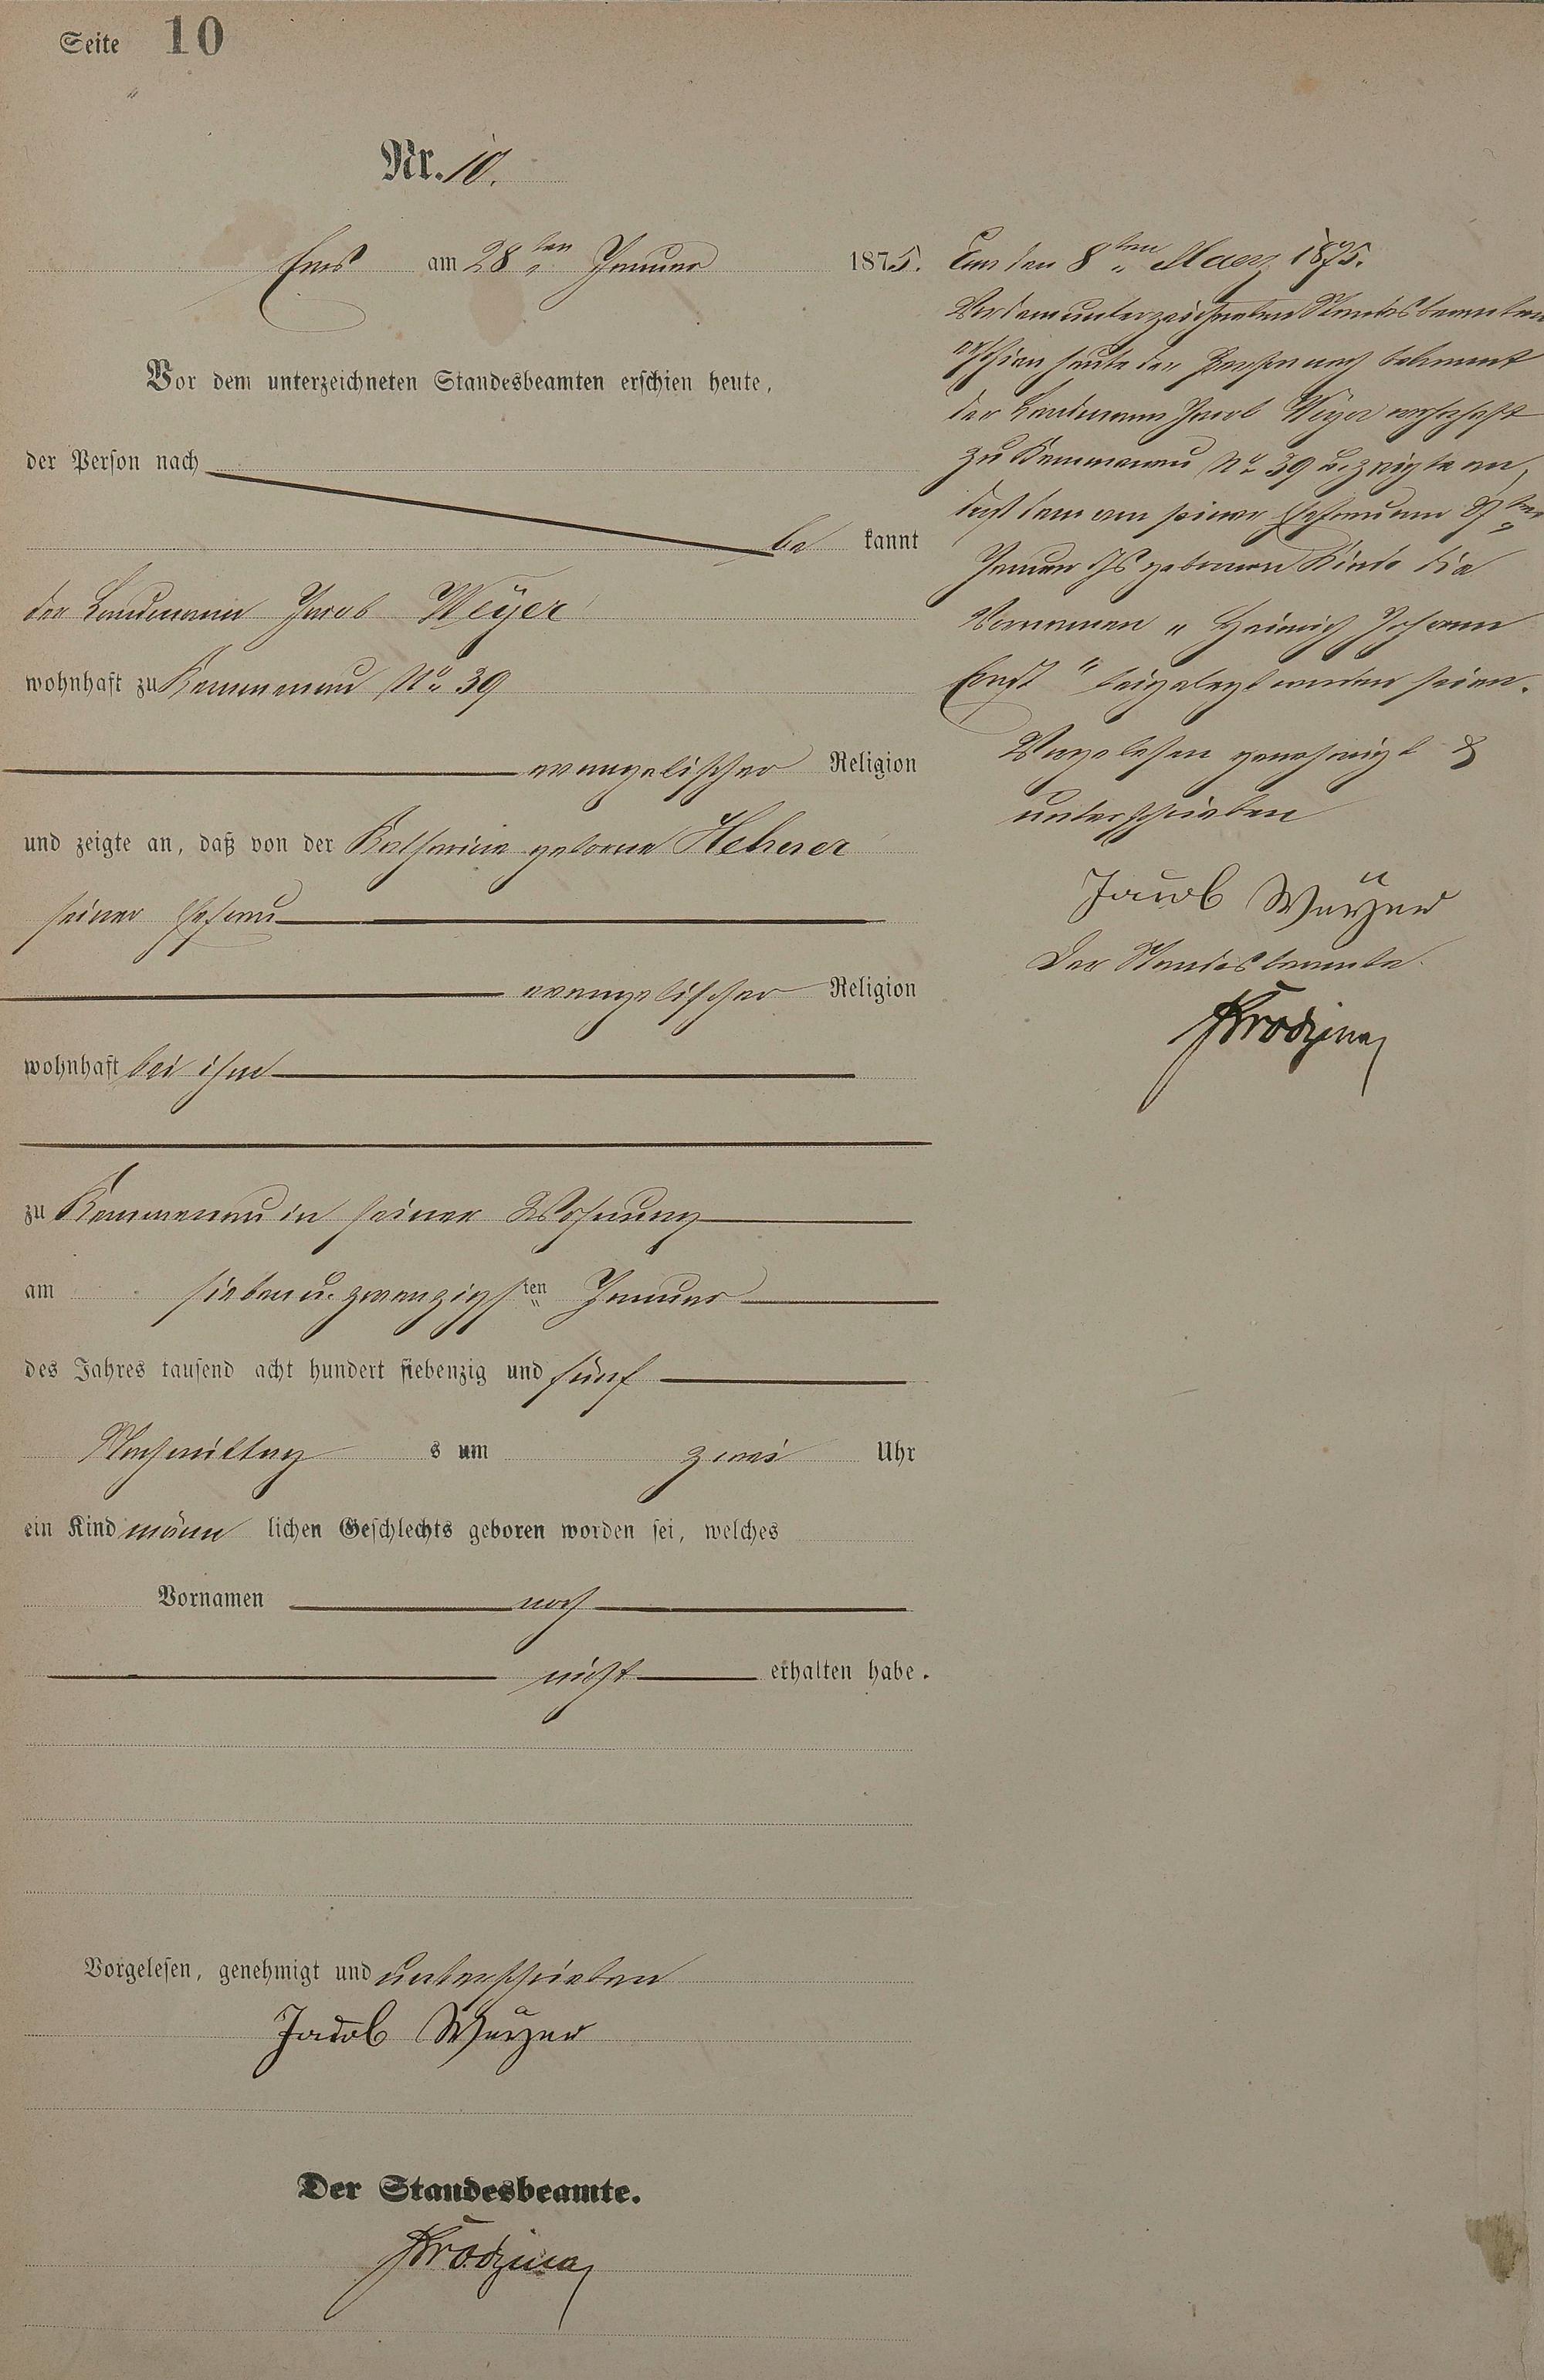 Seite 10
Nr. 10.
Ems am 28ten Januar 1875.
Vor dem unterzeichneten Standesbeamten erschien heute,
der Person nach
be kannt
der Landmann Jacob Weyer
wohnhaft zu Kemmenau No 39
evangelischer Religion
und zeigte an, daß von der Katharine geborne Heherer
seiner Ehefrau
evangelischer Religion
wohnhaft bei ihm
zu Kemmenau in seiner Wohnung
am sieben u. zwanzigsten Januar
des Jahres tausend acht hundert siebenzig und fünf
Nachmittag s um zwei Uhr
ein Kind männ lichen Geschlechts geboren worden sei, welches
Vornamen noch
nicht erhalten habe.
Vorgelesen, genehmigt und unterschrieben
Jacob Weyer
Der Standesbeamte.
Ems den 8ten Maerz 1875.
Vor dem unterzeichneten Standesbeamten
erschien heute der Person nach bekannt
der Landmann Jacob Weyer wohnhaft
zu Kemmenau No 39 u. zeigte an,
daß dem von seiner Ehefrau am 27ten
Januar Js geborenen Kinde die
Vornamen „Heinrich Johann
Ernst" beigelegt worden seien.
Vorgelesen genehmigt &
unterschrieben
Jacob Weyer
Der Standesbeamte